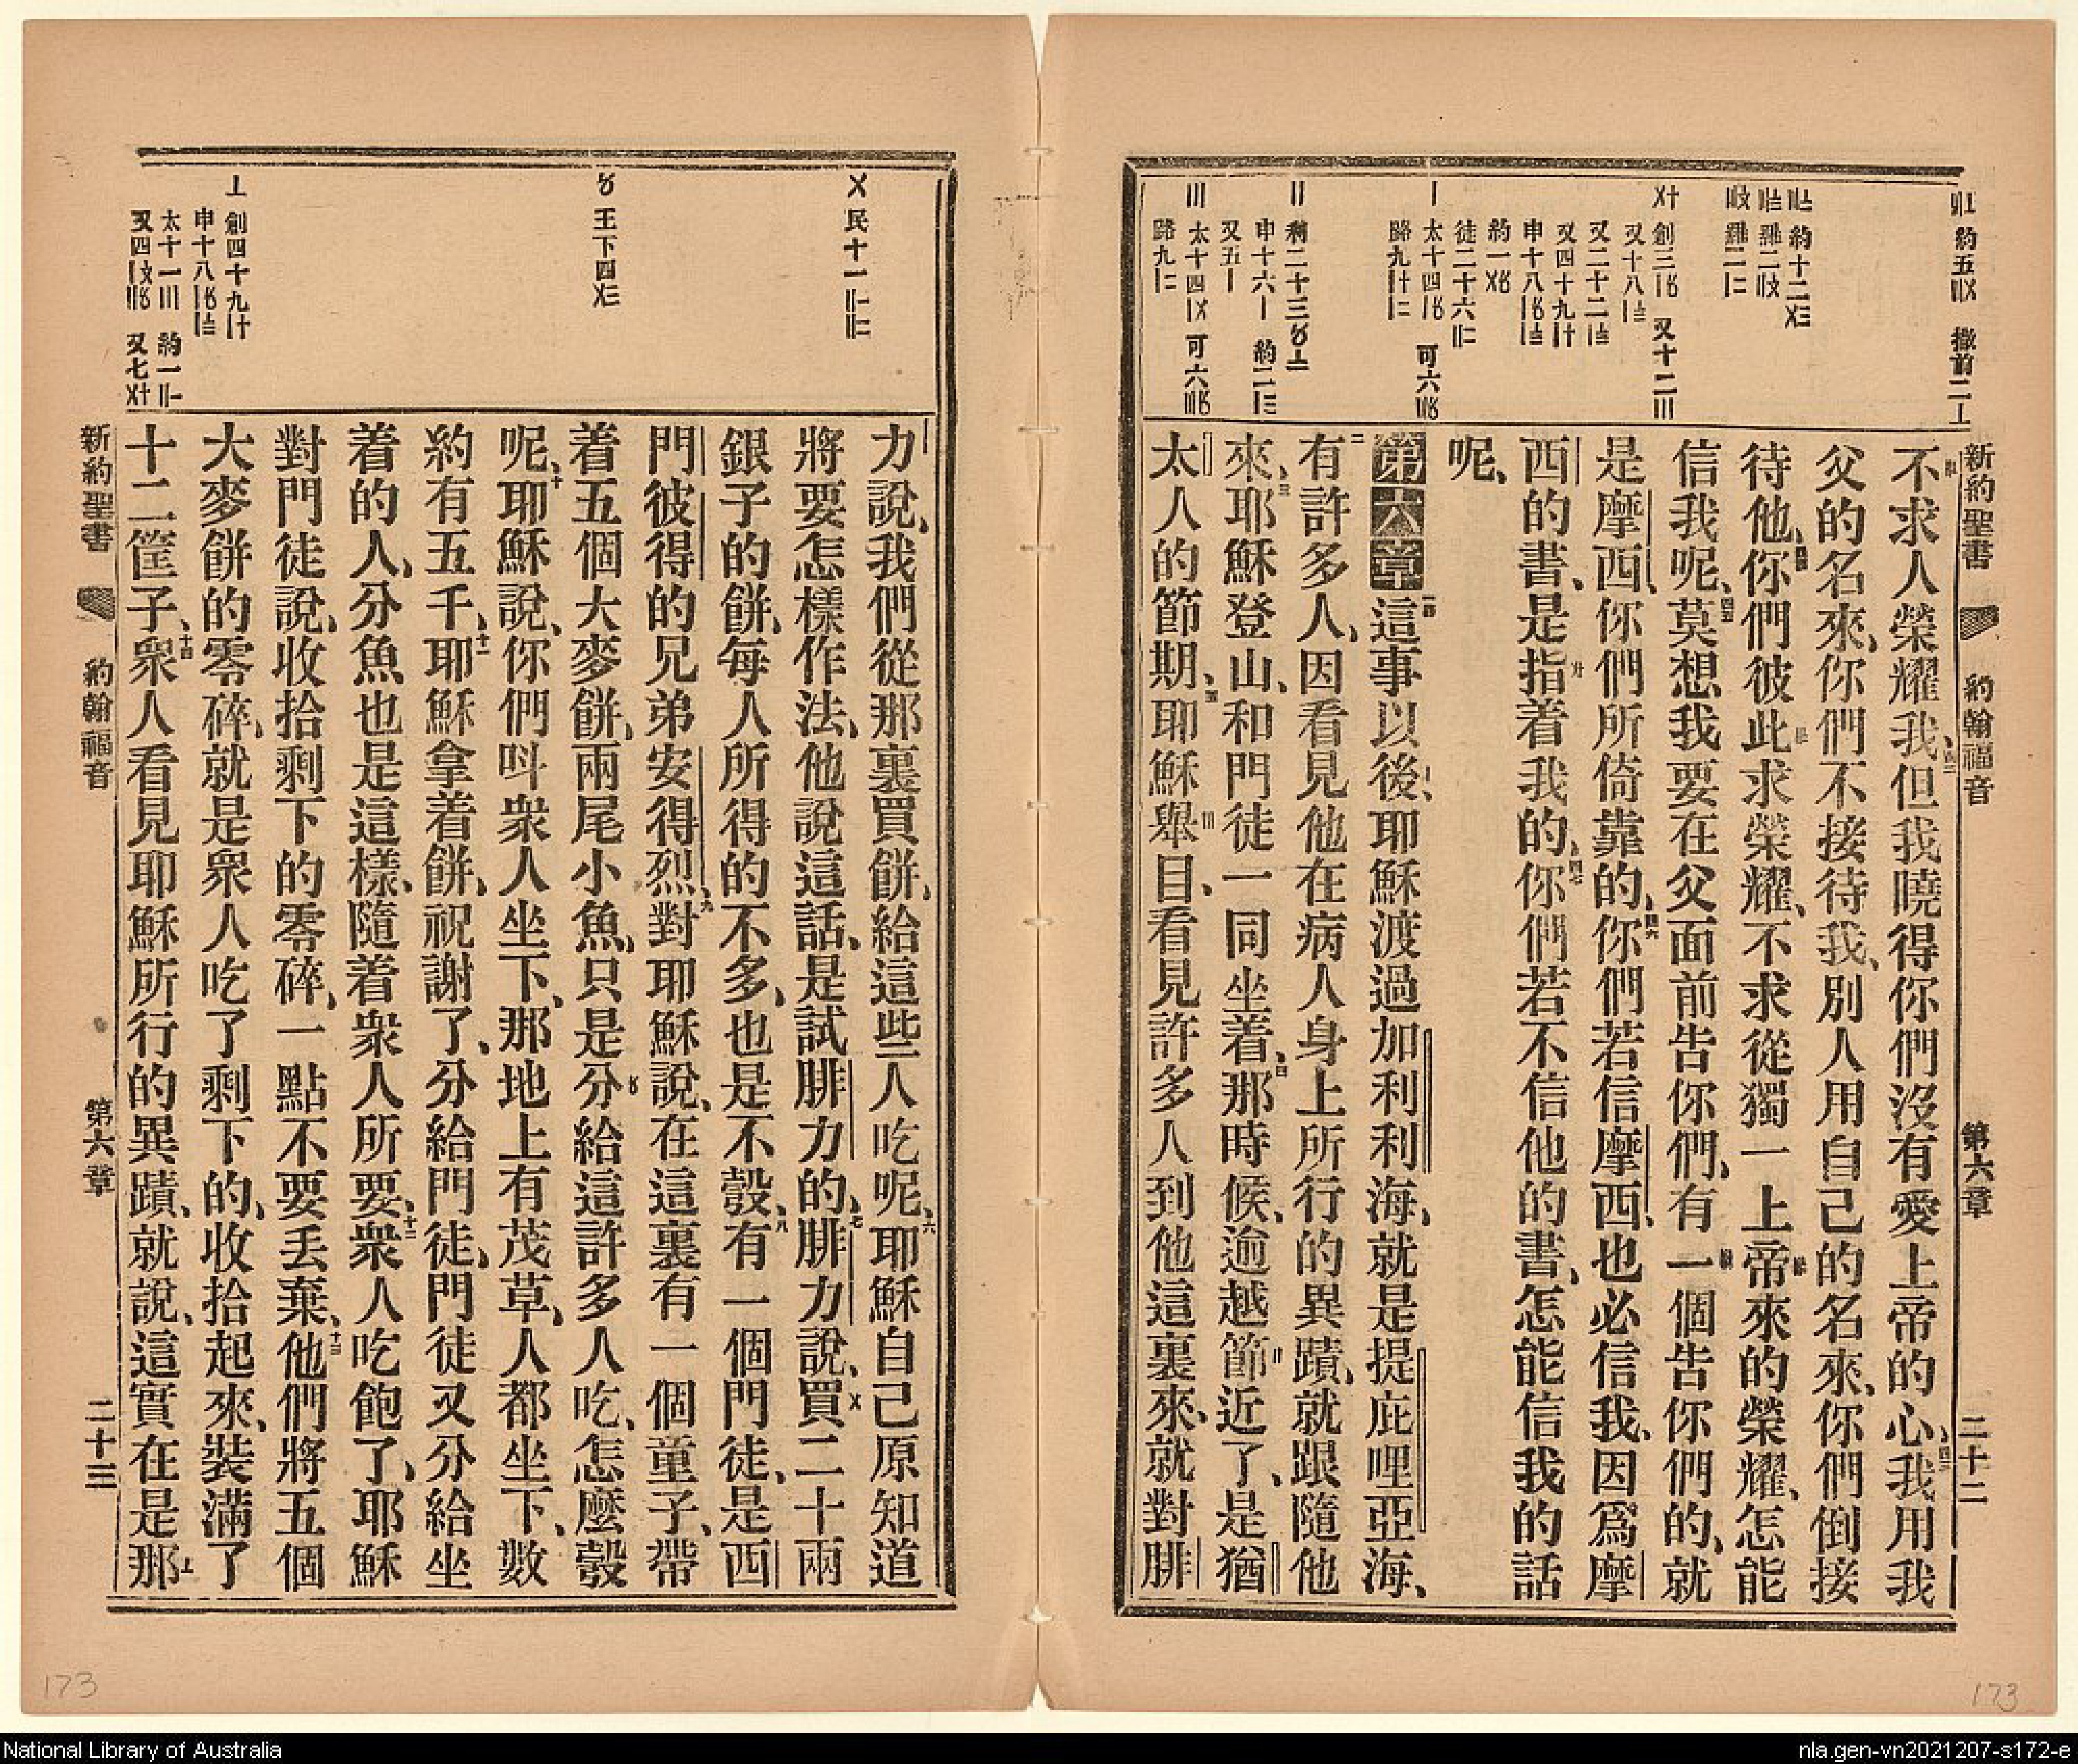 新約聖書 約翰福音 第六章 二十二
不求人榮耀我、但我曉得你們沒有愛上帝的心、我用我
父的名來、你們不接待我、別人用自己的名來、你們倒接
待他、你們彼此求榮耀、不求從獨一上帝來的榮耀、怎能
信我呢、莫想我要在父面前告你們、有一個告你們的、就
是摩西、你們所倚靠的、你們若信摩西、也必信我、因爲摩
西的書、是指着我的、你們若不信他的書、怎能信我的話
呢、
第六章這事以後、耶穌渡過加利利海、就是提庇哩亞海、
有許多人、因看見他在病人身上所行的異蹟、就跟隨他
來、耶穌登山、和門徒一同坐着、那時候、逾越節近了、是猶
太人的節期、耶穌舉目、看見許多人到他這裏來、就對腓
力說、我們從那裏買餅、給這些人吃呢、耶穌自己原知道
將要怎樣作法、他說這話、是試腓力的、腓力說、買二十兩
銀子的餅、每人所得的不多、也是不彀、有一個門徒、是西
門彼得的兄弟安得烈、對耶穌說、在這裏有一個童子、帶
着五個大麥餅、兩尾小魚、只是分給這許多人吃、怎麼彀
呢、耶穌說、你們呌衆人坐下、那地上有茂草、人都坐下、數
約有五千、耶穌拿着餅、祝謝了、分給門徒、門徒又分給坐
着的人、分魚也是這樣、隨着衆人所要、衆人吃飽了、耶穌
對門徒說、收拾剩下的零碎、一點不要丟棄、他們將五個
大麥餅的零碎、就是衆人吃了剩下的、收拾起來、裝滿了
十二筐子、衆人看見耶穌所行的異蹟、就說、這實在是那
新約聖書 約翰福音 第六章 二十三
173
173
National Library of Australia
nla.gen-vn2021207-s172-e